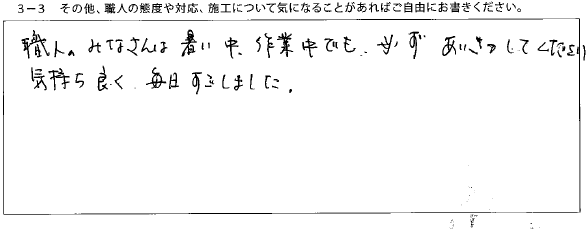 3－3　その他、職人の態度や対応、施工について気になることがあればご自由にお書きください。
職人のみなさんは暑い中、作業中でも、必ずあいさつしてくださり
気持ち良く、毎日すごしました。